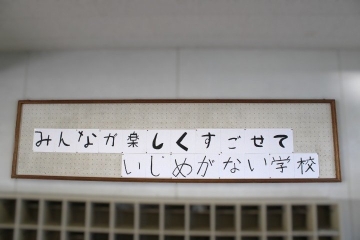 みんなが楽しくすごせて
いじめがない学校